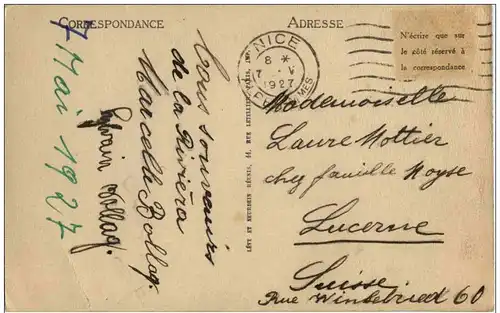 CORRESPONDANCE
ADRESSE
N'écrire que sur
le côté réservé à
la correspondance
NICE
8 *
7 - V
1927
MES
7 Mai 1927
Bons souvenirs
de la Riviera
Marcelle Bollag.
Sylvain Bollag.
LÉVY ET NEURDEIN RÉUNIS, 44, RUE LETELLIER, PARIS, IMP.
Mademoiselle
Laure Mottier
chez famille Moyse
Lucerne
Suisse
Rue Winkelried 60